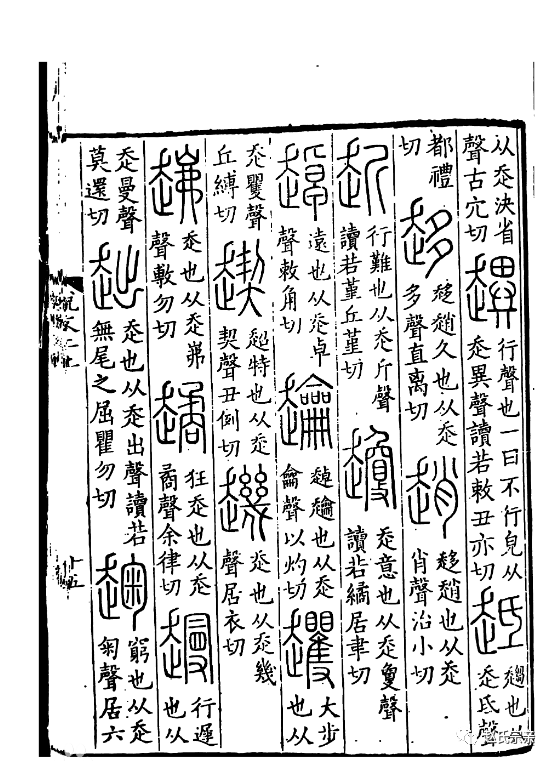 从走決省聲古穴切 趩 行聲也一曰不行皃从走異聲讀若敕丑亦切 趆 趨也从走氐聲
都禮切 趍 趍趙久也从走多聲直离切 趙 趍趙也从走肖聲治小切
赾 行難也从走斤聲讀若堇丘堇切 走意也从走敻聲讀若繘居聿切
趠 遠也从走卓聲敕角切 趠也从走龠聲以灼切 大步也从
走矍聲丘縛切 超特也从走契聲丑例切 走也从走幾聲居衣切
走也从走岪聲敷勿切 狂走也从走矞聲余律切 行遲也从
走曼聲莫還切 走也从走出聲讀若無尾之屈瞿勿切 趜 窮也从走匊聲居六
說文二上
十五
赵氏宗亲